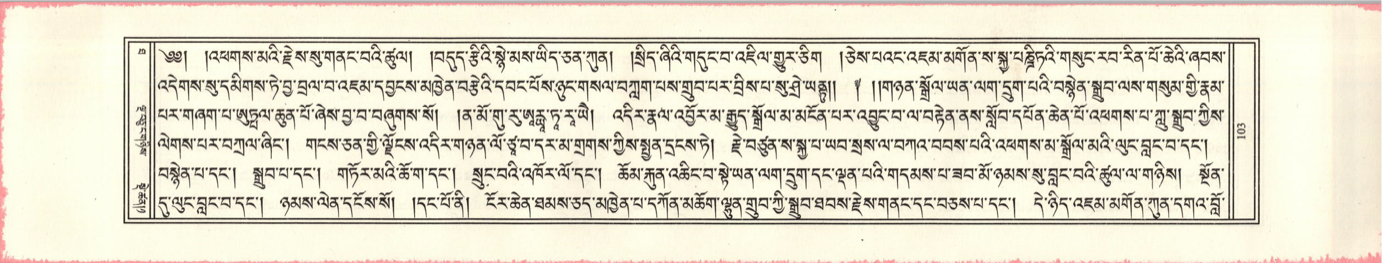 ༄༅། །འཕགས་མའི་རྗེས་སུ་གནང་བའི་ཚུལ། །བདུད་རྩིའི་སྙེ་མས་ཡིད་ཅན་ཀུན། །སྲིད་ཞིའི་གདུང་བ་འཇིལ་གྱུར་ཅིག །ཅེས་པའང་འཇམ་མགོན་ས་སྐྱ་པཎྜི་ཏའི་གསུང་རབ་རིན་པོ་ཆེའི་ཞབས་
འདེགས་སུ་དམིགས་ཏེ་བྱ་བྲལ་བ་འཇམ་དབྱངས་མཁྱེན་བརྩེའི་དབང་པོས་ཉུང་གསལ་བཀླག་པས་གྲུབ་པར་བྲིས་པ་སུ་ཤྲེ་ཡནྟུ།། ། །།གཉན་སྒྲོལ་ཡན་ལག་དྲུག་པའི་བསྙེན་སྒྲུབ་ལས་གསུམ་གྱི་རྣམ་
པར་གཞག་པ་ཨུཏྤལ་ཆུན་པོ་ཞེས་བྱ་བ་བཞུགས་སོ། །ན་མོ་གུ་རུ་ཨཱརྻ་ཏཱ་རཱ་ཡཻ། འདིར་རྣལ་འབྱོར་མ་རྒྱུད་སྒྲོལ་མ་མངོན་པར་འབྱུང་བ་ལ་བརྟེན་ནས་སློབ་དཔོན་ཆེན་པོ་འཕགས་པ་ཀླུ་སྒྲུབ་ཀྱིས་
ལེགས་པར་བཀྲལ་ཞིང་། གངས་ཅན་གྱི་ལྗོངས་འདིར་གཉན་ལོ་ཙཱ་བ་དར་མ་གྲགས་ཀྱིས་སྤྱན་དྲངས་ཏེ། རྗེ་བཙུན་ས་སྐྱ་པ་ཡབ་སྲས་ལ་བཀའ་བབས་པའི་འཕགས་མ་སྒྲོལ་མའི་ལུང་བླང་བ་དང་།
བསྙེན་པ་དང་། སྒྲུབ་པ་དང་། གཏོར་མའི་ཆོ་ག་དང་། སྲུང་བའི་འཁོར་ལོ་དང་། ཆོམ་རྐུན་འཆིང་བ་སྟེ་ཡན་ལག་དྲུག་དང་ལྡན་པའི་གདམས་པ་ཟབ་མོ་ཉམས་སུ་བླང་བའི་ཚུལ་ལ་གཉིས། སྔོན་
དུ་ལུང་བླང་བ་དང་། ཉམས་ལེན་དངོས་སོ། །དང་པོ་ནི། ངོར་ཆེན་ཐམས་ཅད་མཁྱེན་པ་དཀོན་མཆོག་ལྷུན་གྲུབ་ཀྱི་སྒྲུབ་ཐབས་རྗེས་གནང་དང་བཅས་པ་དང་། དེ་ཉིད་འཇམ་མགོན་ཀུན་དགའ་བློ་
103